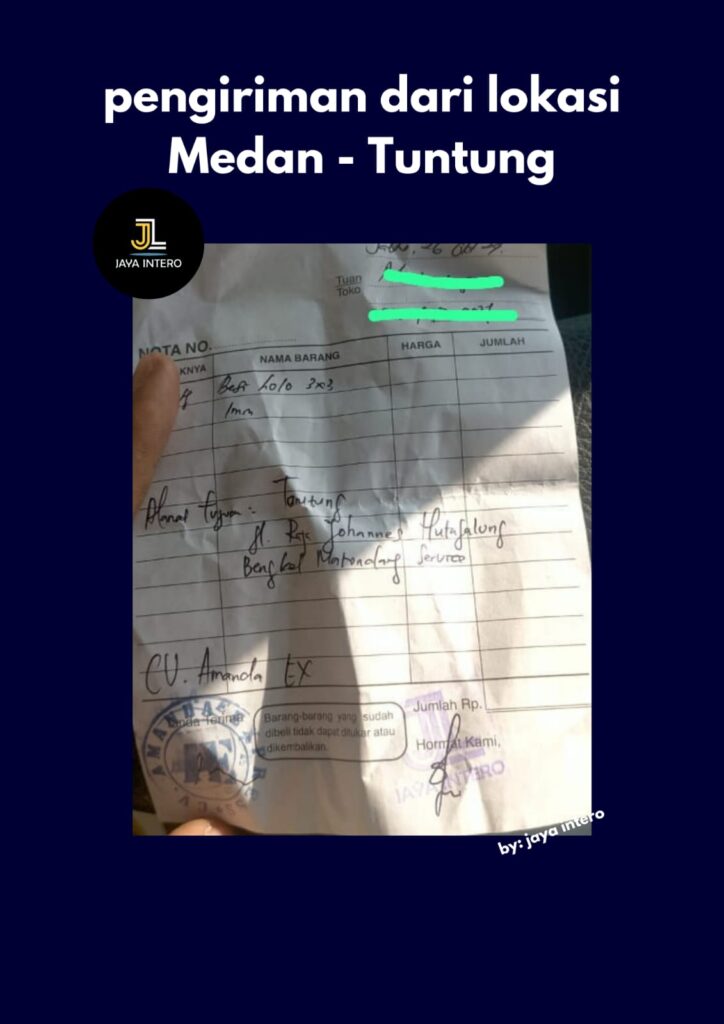 pengiriman dari lokasi
Medan - Tuntung
JL
JAYA INTERO
Tuan
Toko
NOTA NO.
KNYA
NAMA BARANG
HARGA
JUMLAH
Besi holo 3x3
1mm
Alamat tujuan :- Tarutung
Jl. Raja Johannes Hutagalung
Bengkel Matondang Service
CV. Amanda EX
Tanda Terima
Barang-barang yang sudah
dibeli tidak dapat ditukar atau
dikembalikan.
Jumlah Rp.
Hormat Kami,
JAYA INTERO
by: jaya intero